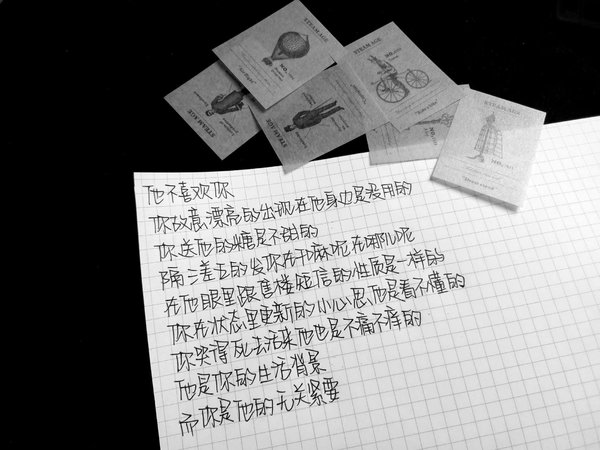 STEAM AGE
STEAM AGE
NO.
STEAM AGE
NO.
STEAM AGE
STEAM AGE
NO.
他不喜欢你
你故意漂亮的出现在他身边是没用的
你送他的糖是不甜的
隔三差五的发你在干嘛呢在哪儿呢
在他眼里跟售楼短信的性质是一样的
你在状态里更新的小心思他是看不懂的
你哭得死去活来他也是不痛不痒的
他是你的生活背景
而你是他的无关紧要